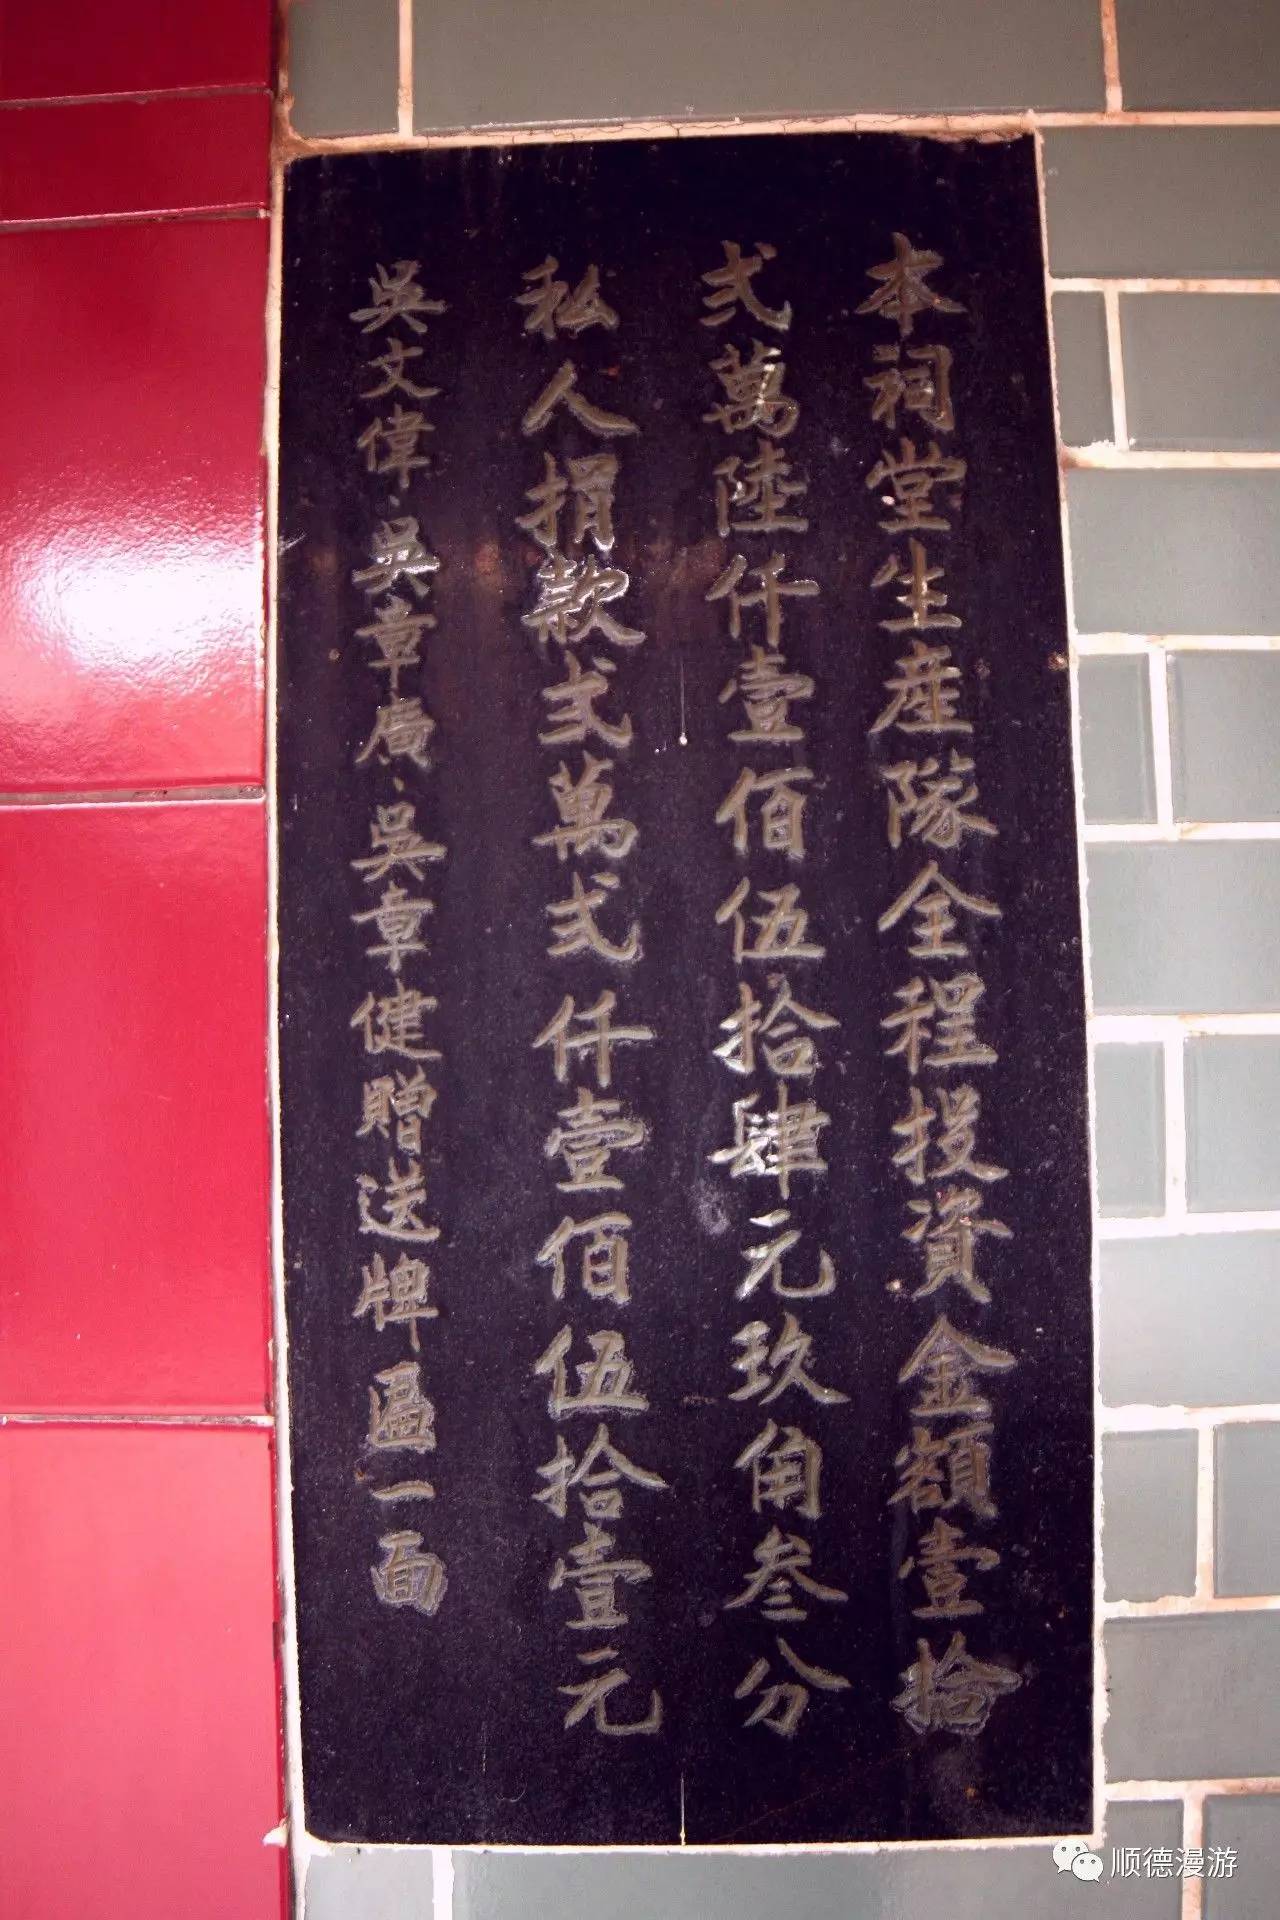 本祠堂生産隊全程投資金額壹拾
弍萬陸仟壹佰伍拾肆元玖角叁分
私人捐款弍萬弍仟壹佰伍拾壹元
吳文偉、吳章廣、吳章健贈送牌匾一面
顺德漫游